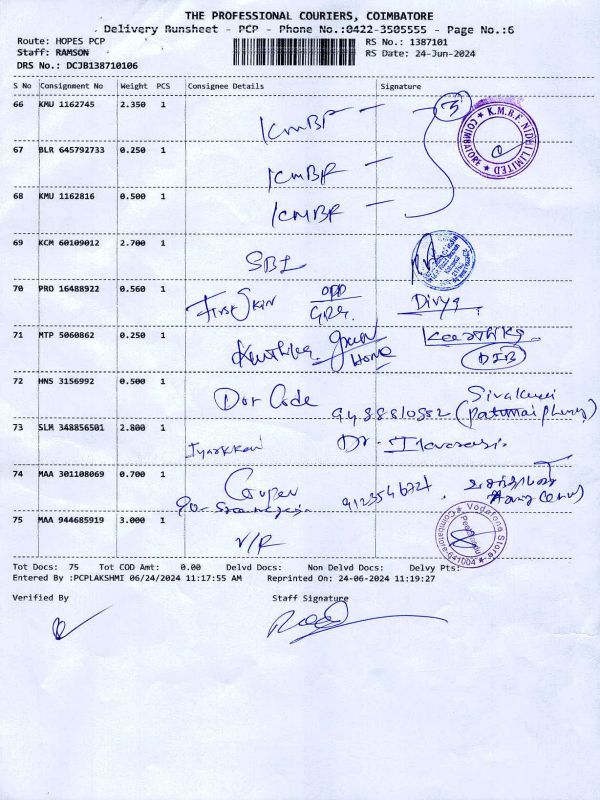 THE PROFESSIONAL COURIERS, COIMBATORE
Delivery Runsheet - PCP - Phone No.:0422-3505555 - Page No.:6
Route: HOPES PCP RS No.: 1387101
Staff: RAMSON RS Date: 24-Jun-2024
DRS No.: DCJB138710106
S No Consignment No Weight PCS Consignee Details Signature
66 KMU 1162745 2.350 1 KMBF 3
K.M.B.F. NIDHI LIMITED COIMBATORE
67 BLR 645792733 0.250 1 KMBF
68 KMU 1162816 0.500 1 KMBF
69 KCM 60109012 2.700 1 SBI
70 PRO 16488922 0.560 1 First Skin OPP Divya
71 MTP 5060862 0.250 1 Green Home
72 HNS 3156992 0.500 1 Dor Code
73 SLM 348856501 2.800 1 Dr.
74 MAA 301108069 0.700 1 9123546721
75 MAA 944685919 3.000 1 V/F
Vodafone Store Coimbatore-641004
Tot Docs: 75 Tot COD Amt: 0.00 Delvd Docs: Non Delvd Docs: Delvy Pts:
Entered By :PCPLAKSHMI 06/24/2024 11:17:55 AM Reprinted On: 24-06-2024 11:19:27
Verified By Staff Signature